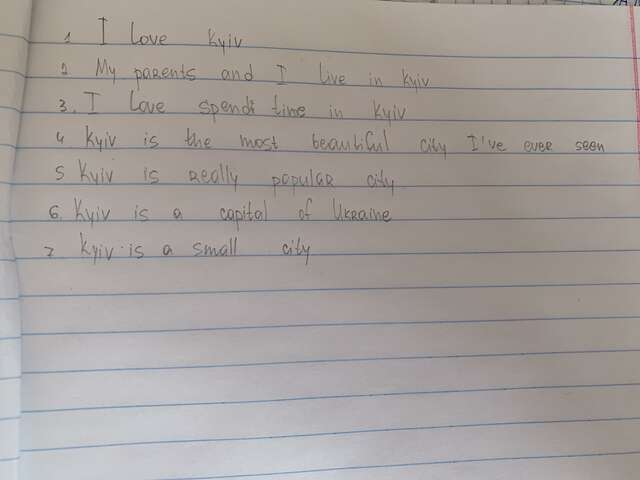 1 I love Kyiv
2 My parents and I live in Kyiv
3. I love spendi time in Kyiv
4 Kyiv is the most beautiful city I've ever seen
5 Kyiv is really popular city
6. Kyiv is a capital of Ukraine
7 Kyiv is a small city